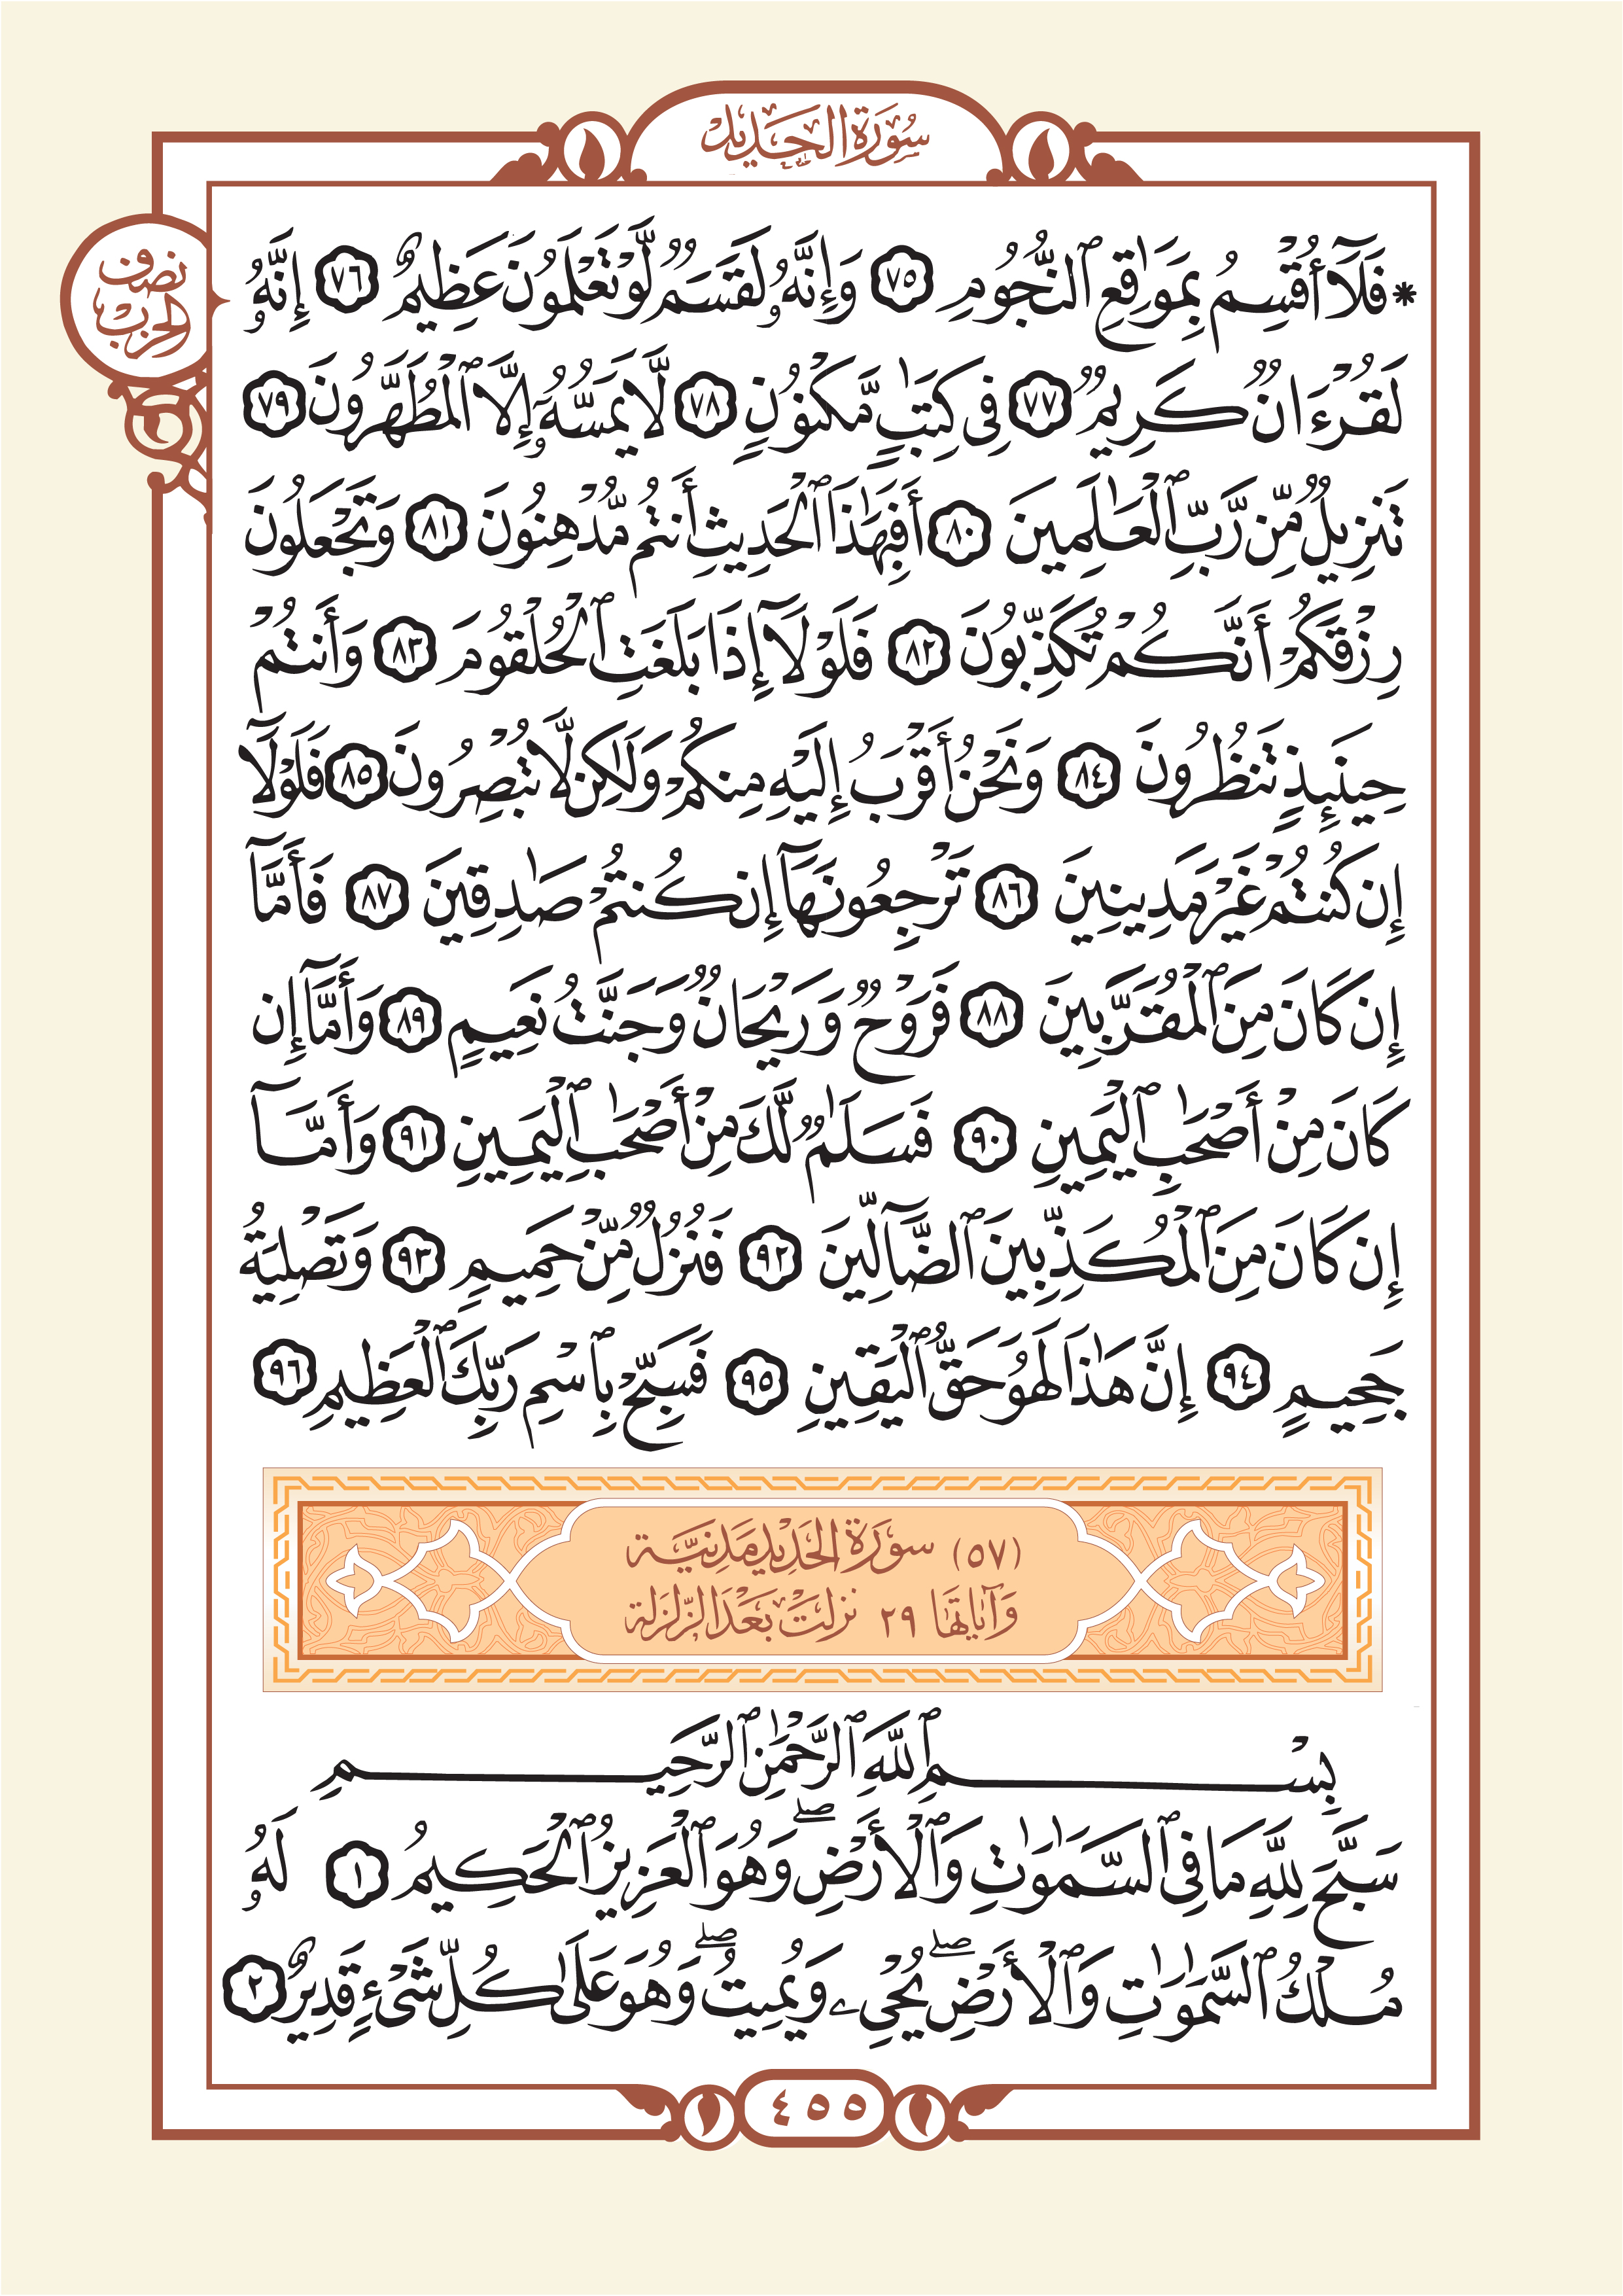 سُورَةُ الحَدِيد
نصف
الحزب
* فَلَآ أُقْسِمُ بِمَوَٰقِعِ ٱلنُّجُومِ ٧٥ وَإِنَّهُۥ لَقَسَمٌ لَّوْ تَعْلَمُونَ عَظِيمٌ ٧٦ إِنَّهُۥ
لَقُرْءَانٌ كَرِيمٌ ٧٧ فِى كِتَٰبٍ مَّكْنُونٍ ٧٨ لَّا يَمَسُّهُۥٓ إِلَّا ٱلْمُطَهَّرُونَ ٧٩
تَنزِيلٌ مِّن رَّبِّ ٱلْعَٰلَمِينَ ٨٠ أَفَبِهَٰذَا ٱلْحَدِيثِ أَنتُم مُّدْهِنُونَ ٨١ وَتَجْعَلُونَ
رِزْقَكُمْ أَنَّكُمْ تُكَذِّبُونَ ٨٢ فَلَوْلَآ إِذَا بَلَغَتِ ٱلْحُلْقُومَ ٨٣ وَأَنتُمْ
حِينَئِذٍ تَنظُرُونَ ٨٤ وَنَحْنُ أَقْرَبُ إِلَيْهِ مِنكُمْ وَلَٰكِن لَّا تُبْصِرُونَ ٨٥ فَلَوْلَآ
إِن كُنتُمْ غَيْرَ مَدِينِينَ ٨٦ تَرْجِعُونَهَآ إِن كُنتُمْ صَٰدِقِينَ ٨٧ فَأَمَّآ
إِن كَانَ مِنَ ٱلْمُقَرَّبِينَ ٨٨ فَرَوْحٌ وَرَيْحَانٌ وَجَنَّتُ نَعِيمٍ ٨٩ وَأَمَّآ إِن
كَانَ مِنْ أَصْحَٰبِ ٱلْيَمِينِ ٩٠ فَسَلَٰمٌ لَّكَ مِنْ أَصْحَٰبِ ٱلْيَمِينِ ٩١ وَأَمَّآ
إِن كَانَ مِنَ ٱلْمُكَذِّبِينَ ٱلضَّآلِّينَ ٩٢ فَنُزُلٌ مِّنْ حَمِيمٍ ٩٣ وَتَصْلِيَةُ
جَحِيمٍ ٩٤ إِنَّ هَٰذَا لَهُوَ حَقُّ ٱلْيَقِينِ ٩٥ فَسَبِّحْ بِٱسْمِ رَبِّكَ ٱلْعَظِيمِ ٩٦
(٥٧) سورَة الحَدِيد مَدنيَّة
وَآيَاتهَا ٢٩ نزلتْ بَعْدَ الزّلزلة
بِسْمِ ٱللَّهِ ٱلرَّحْمَٰنِ ٱلرَّحِيمِ
سَبَّحَ لِلَّهِ مَا فِى ٱلسَّمَٰوَٰتِ وَٱلْأَرْضِ ۖ وَهُوَ ٱلْعَزِيزُ ٱلْحَكِيمُ ١ لَهُۥ
مُلْكُ ٱلسَّمَٰوَٰتِ وَٱلْأَرْضِ ۖ يُحْىِۦ وَيُمِيتُ ۖ وَهُوَ عَلَىٰ كُلِّ شَىْءٍ قَدِيرٌ ٢
٤٥٥